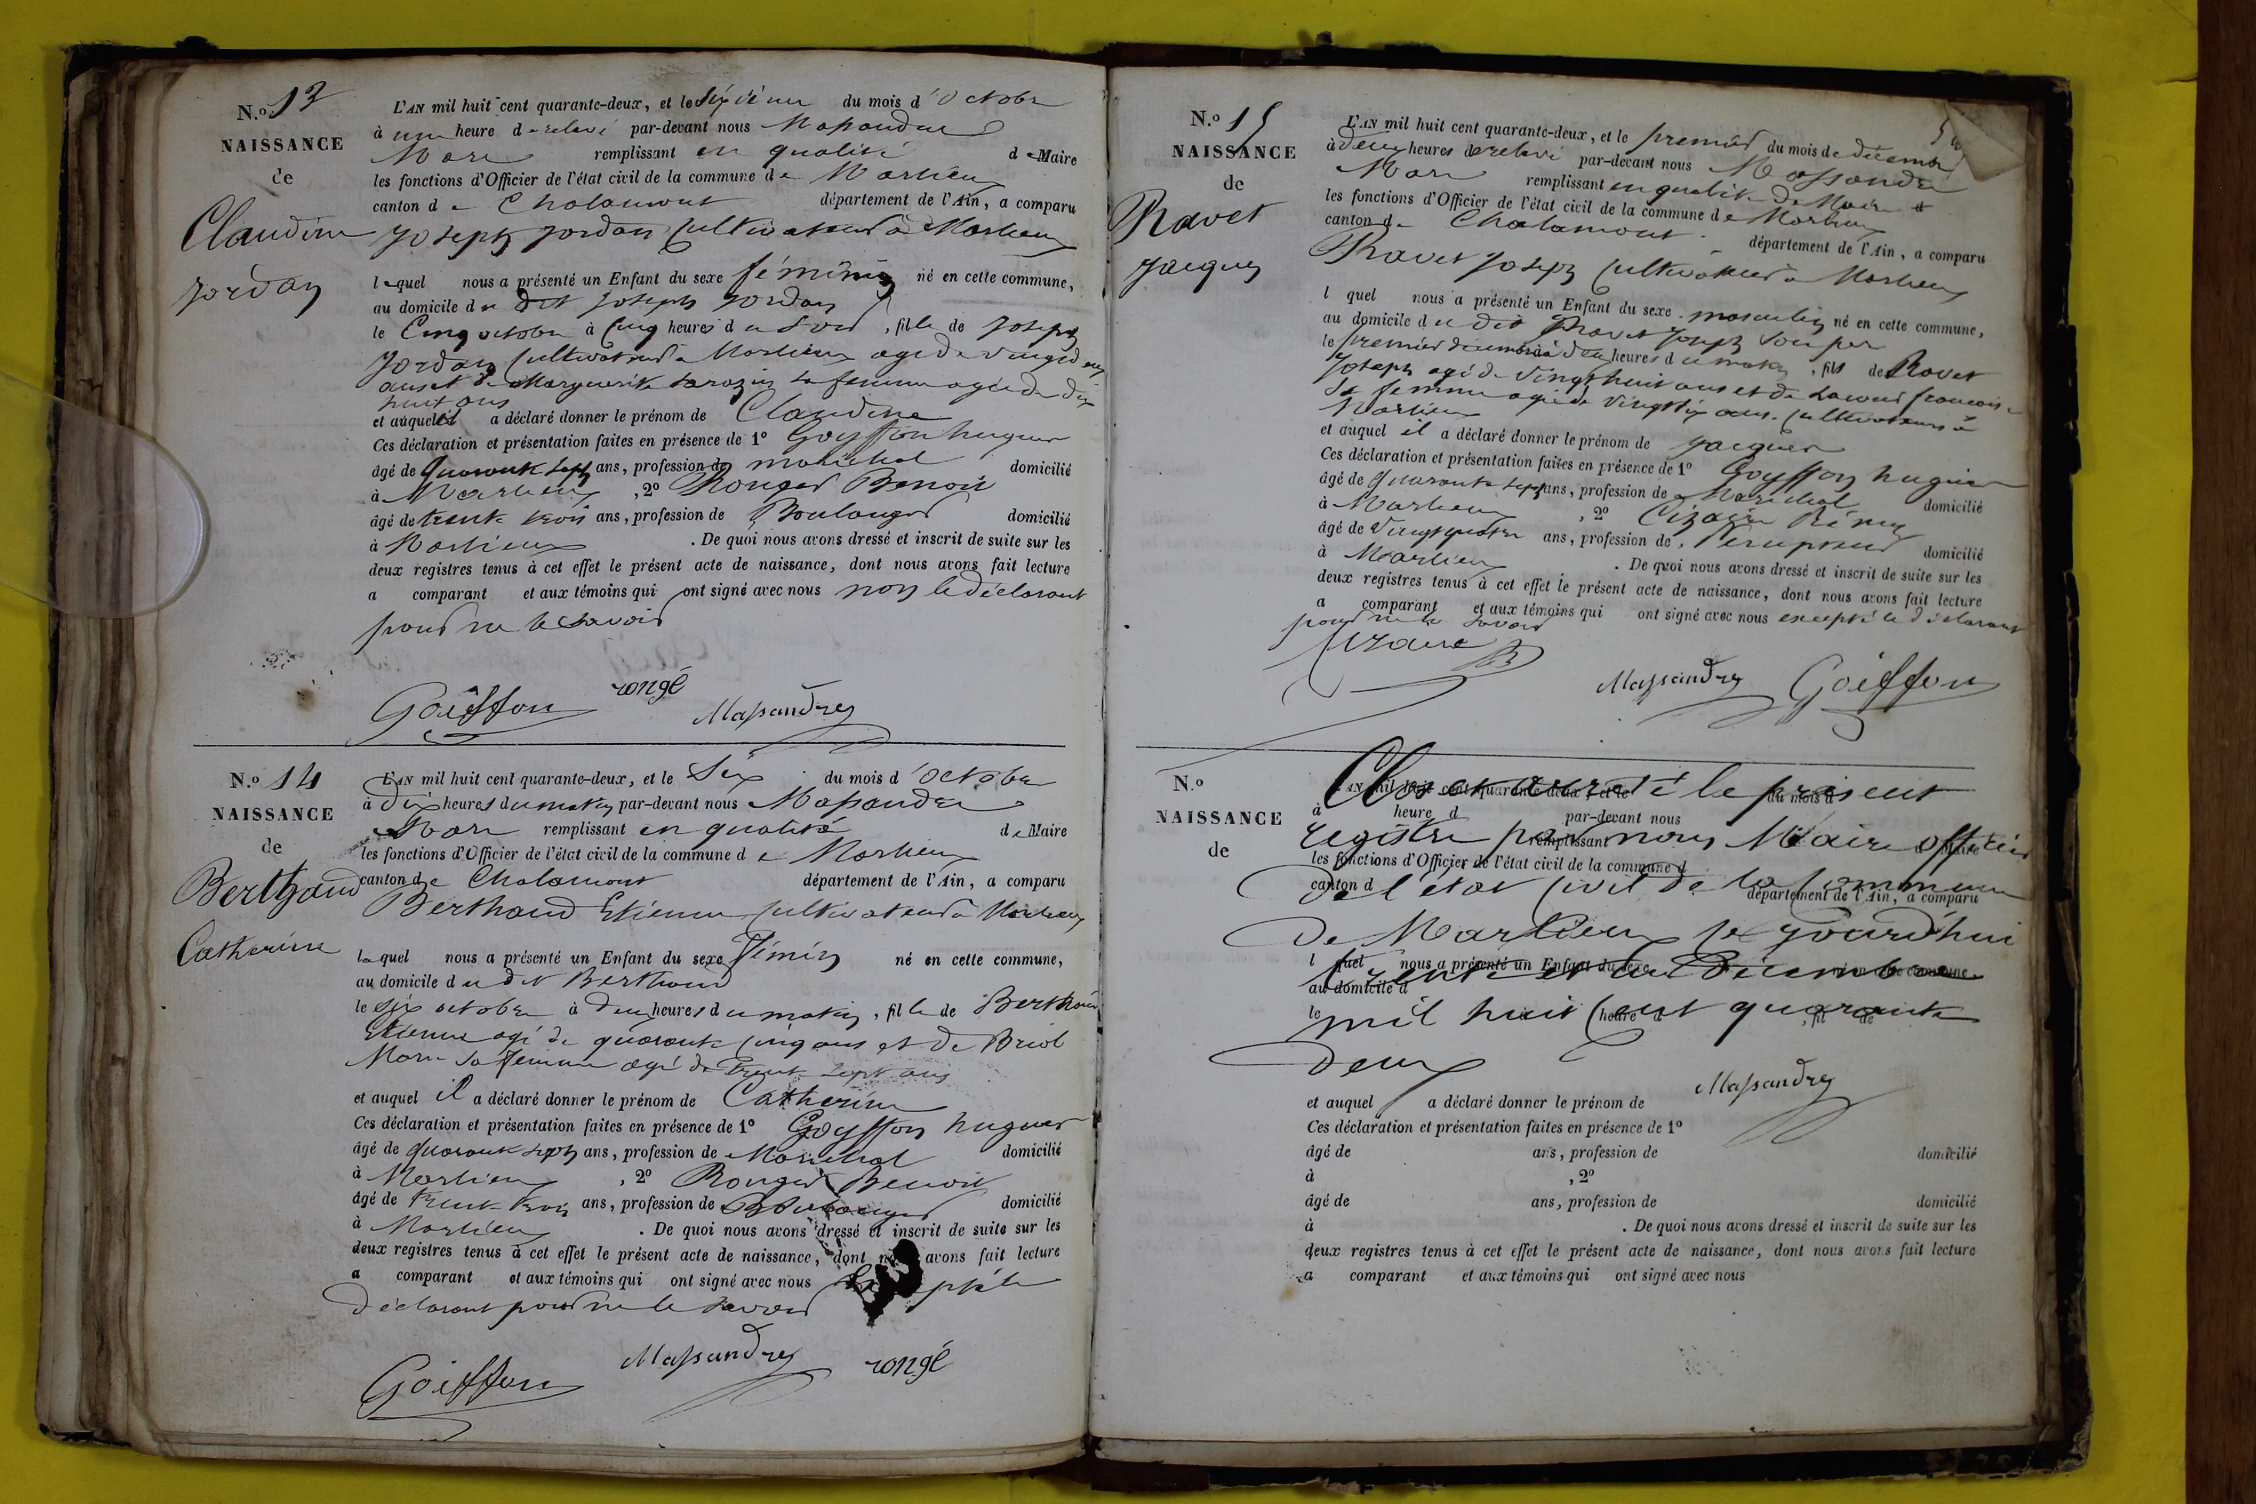 N.º 13
NAISSANCE
de
Claudine
Jordan
L'AN mil huit cent quarante-deux, et le sixième du mois d'octobre
à une heure de relevé par-devant nous Massandre
Marc remplissant en qualité de Maire
les fonctions d'Officier de l'état civil de la commune de Marlieu
canton de Chalamont département de l'Ain, a comparu
Joseph Jordan cultivateur à Marlieux
lequel nous a présenté un Enfant du sexe féminin né en cette commune,
au domicile du dit Joseph Jordan
le Cinq octobre à cinq heures du soir, fille de Joseph
Jordan cultivateur à Marlieux agé de vingt
ans et de Marguerite Sarazin sa femme agée de dix
huit ans
et auquel il a déclaré donner le prénom de Claudine
Ces déclaration et présentation faites en présence de 1º Goyffon hugues
âgé de quarante sept ans, profession de maréchal domicilié
à Marlieux, 2º Ronger Benoit
âgé de trente trois ans, profession de Boulanger domicilié
à Marlieux. De quoi nous avons dressé et inscrit de suite sur les
deux registres tenus à cet effet le présent acte de naissance, dont nous avons fait lecture
a comparant et aux témoins qui ont signé avec nous non le déclarant
pour ne le savoir
Goiffon rongé Massandre
N.º 14
NAISSANCE
de
Berthaud
Catherine
L'AN mil huit cent quarante-deux, et le Six du mois d'octobre
à dix heures du matin par-devant nous Massandre
Marc remplissant en qualité de Maire
les fonctions d'Officier de l'état civil de la commune de Marlieux
canton de Chalamont département de l'Ain, a comparu
Berthaud Etienne cultivateur à Marlieux
lequel nous a présenté un Enfant du sexe féminin né en cette commune,
au domicile du dit Berthaud
le six octobre à deux heures du matin, fille de Berthaud
Etienne agé de quarante cinq ans et de Briol
Marie sa femme agé de trente sept ans
et auquel il a déclaré donner le prénom de Catherine
Ces déclaration et présentation faites en présence de 1º Goyffon hugues
âgé de quarante sept ans, profession de Maréchal domicilié
à Marlieux, 2º Ronger Benoit
âgé de trente trois ans, profession de Boulanger domicilié
à Marlieux. De quoi nous avons dressé et inscrit de suite sur les
deux registres tenus à cet effet le présent acte de naissance, dont nous avons fait lecture
a comparant et aux témoins qui ont signé avec nous
déclarant pour ne le savoir
Goiffon Massandre rongé
N.º 15
NAISSANCE
de
Ravet
Jacques
L'AN mil huit cent quarante-deux, et le premier du mois de décembre
à deux heures de relevé par-devant nous Massandre
Marc remplissant en qualité de Maire
les fonctions d'Officier de l'état civil de la commune de Marlieux
canton de Chalamont département de l'Ain, a comparu
Ravet Joseph cultivateur à Marlieux
l quel nous a présenté un Enfant du sexe masculin né en cette commune,
au domicile du dit Ravet Joseph son père
le premier décembre à deux heures du matin, fils de Ravet
Joseph agé de vingt huit ans et de françoise
sa femme agée de vingt six ans cultivateurs à
Marlieux
et auquel il a déclaré donner le prénom de Jacques
Ces déclaration et présentation faites en présence de 1º Goyffon hugues
âgé de quarante sept ans, profession de Maréchal domicilié
à Marlieux, 2º Cizaire Rémy
âgé de vingt quatre ans, profession de domicilié
à Marlieux. De quoi nous avons dressé et inscrit de suite sur les
deux registres tenus à cet effet le présent acte de naissance, dont nous avons fait lecture
a comparant et aux témoins qui ont signé avec nous excepté le déclarant
pour ne le savoir
Cizaire
Massandre Goiffon
N.º
NAISSANCE
de
L'AN mil huit cent quarante-deux, et le du mois d
Clos et arreté le présent
à heure d par-devant nous
registre par nous Maire officier
remplissant Maire
les fonctions d'Officier de l'état civil de la commune d
De l'état civil de la Commune
canton d département de l'Ain, a comparu
De Marlieux ce jourd'hui
l quel nous a présenté un Enfant du sexe né en cette commune,
trente et un Décembre
au domicile d
le heure d , fil de
mil huit cent quarante
Deux
Massandre
et auquel a déclaré donner le prénom de
Ces déclaration et présentation faites en présence de 1º
âgé de ans, profession de domicilié
à , 2º
âgé de ans, profession de domicilié
à . De quoi nous avons dressé et inscrit de suite sur les
deux registres tenus à cet effet le présent acte de naissance, dont nous avons fait lecture
a comparant et aux témoins qui ont signé avec nous